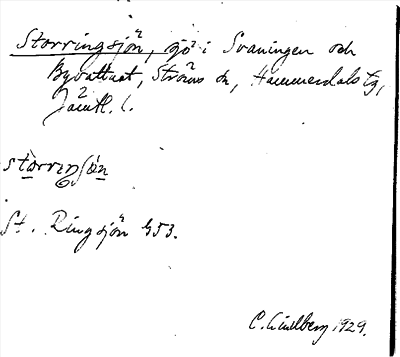 Storringsjön, sjö i Svaningen och
Byvattnet, Ströms sn, Hammerdals tg,
Jämtl. l.
St. Ringsjön G53.
C. Lindberg 1929.